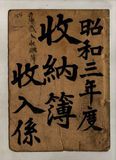 昭和三年度
收納簿
收入係